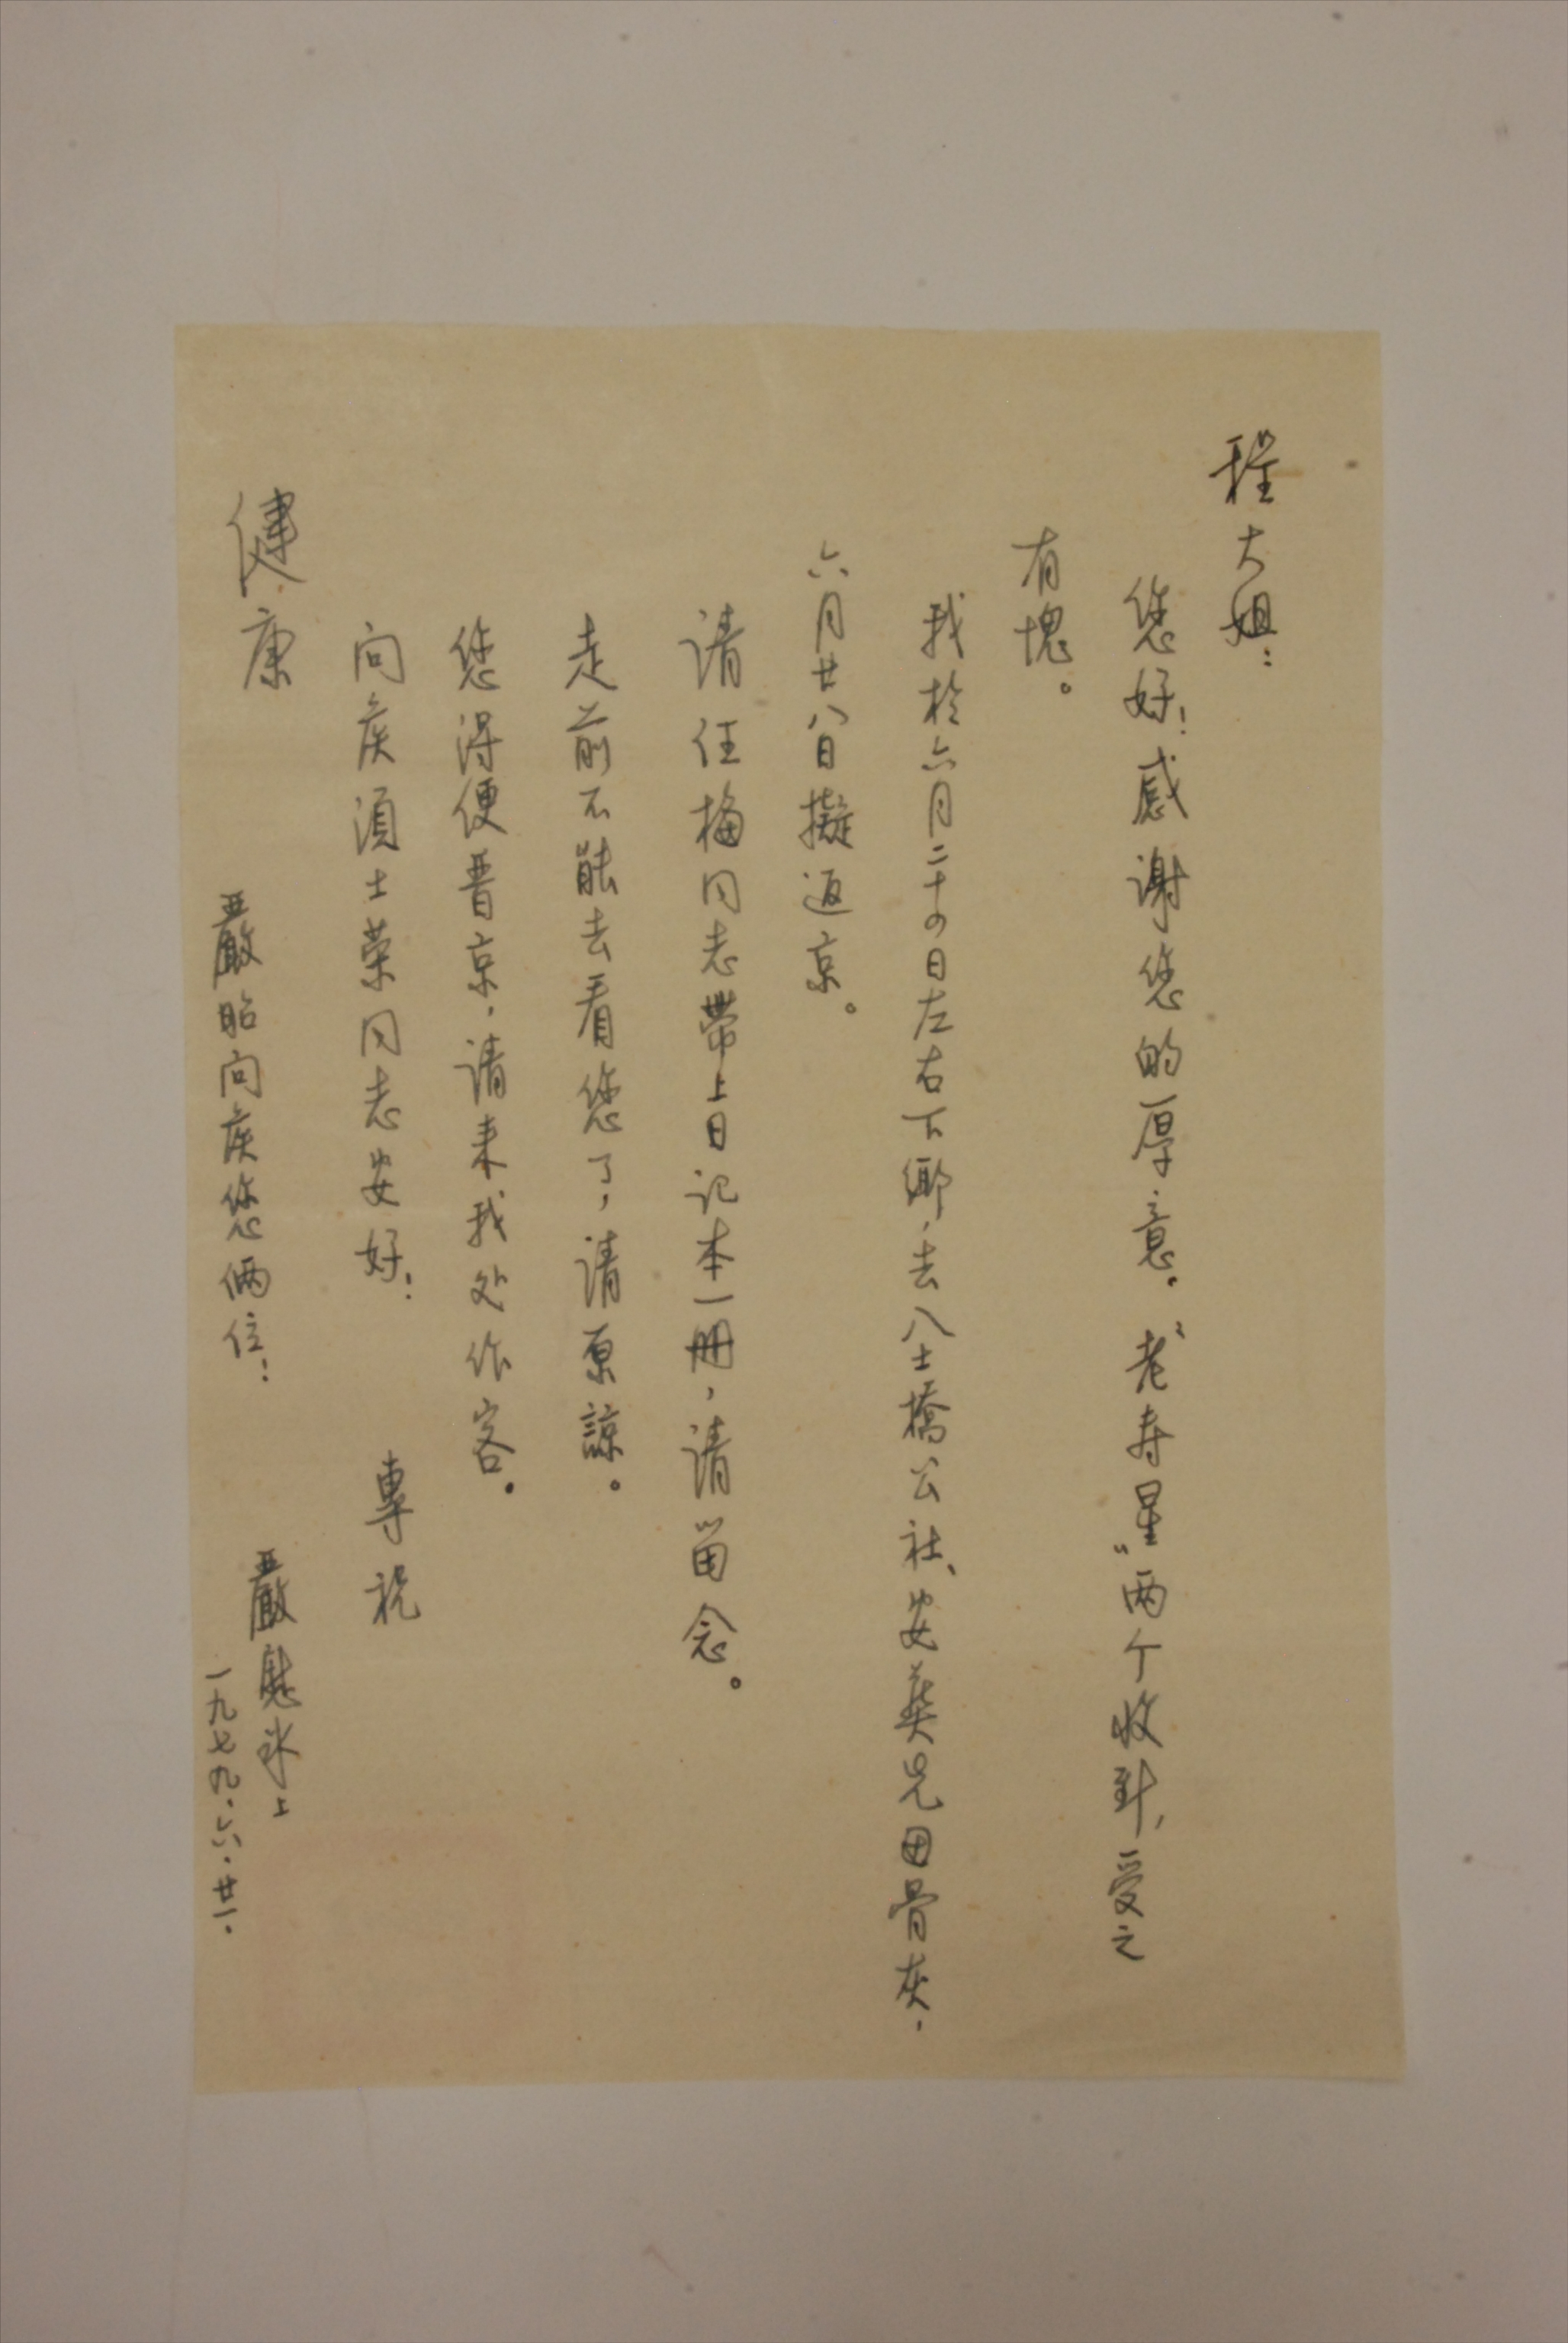 程大姐：
您好！感谢您的厚意。"老寿星"两个收到，受之
有愧。
我於六月二十四日左右下鄉，去八士橋公社、安葬兄因骨灰，
六月廿八日擬返京。
请任梅同志帶上日记本一册，请留念。
走前不能去看您了，请原諒。
您得便晋京，请来我处作客。
向侯湏士荣同志安好！ 專祝
健康
嚴慰冰上
一九七九.六.廿一.
嚴昭问侯您俩位！